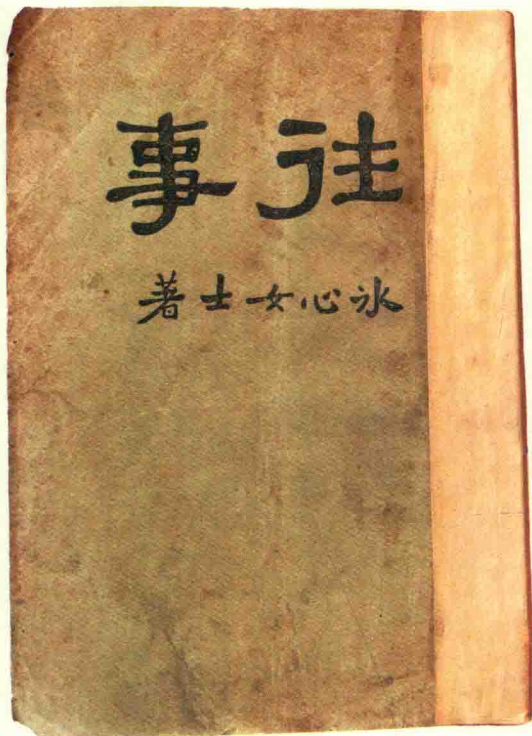 往事
冰心女士著